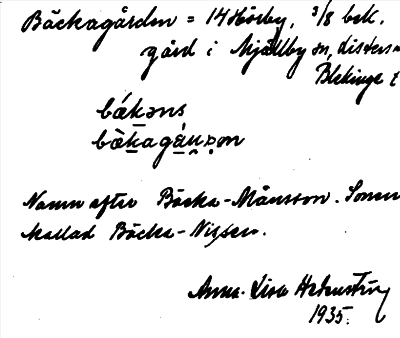 Bäckagården = 14 Hörby, 3/8 bek.
gård i Mjällby sn, Listers
Blekinge
bǽkəns
Namn efter Bäcka-Månsson. Sonen
kallad Bäcka-Nissen.
Anna-Lisa
1935.